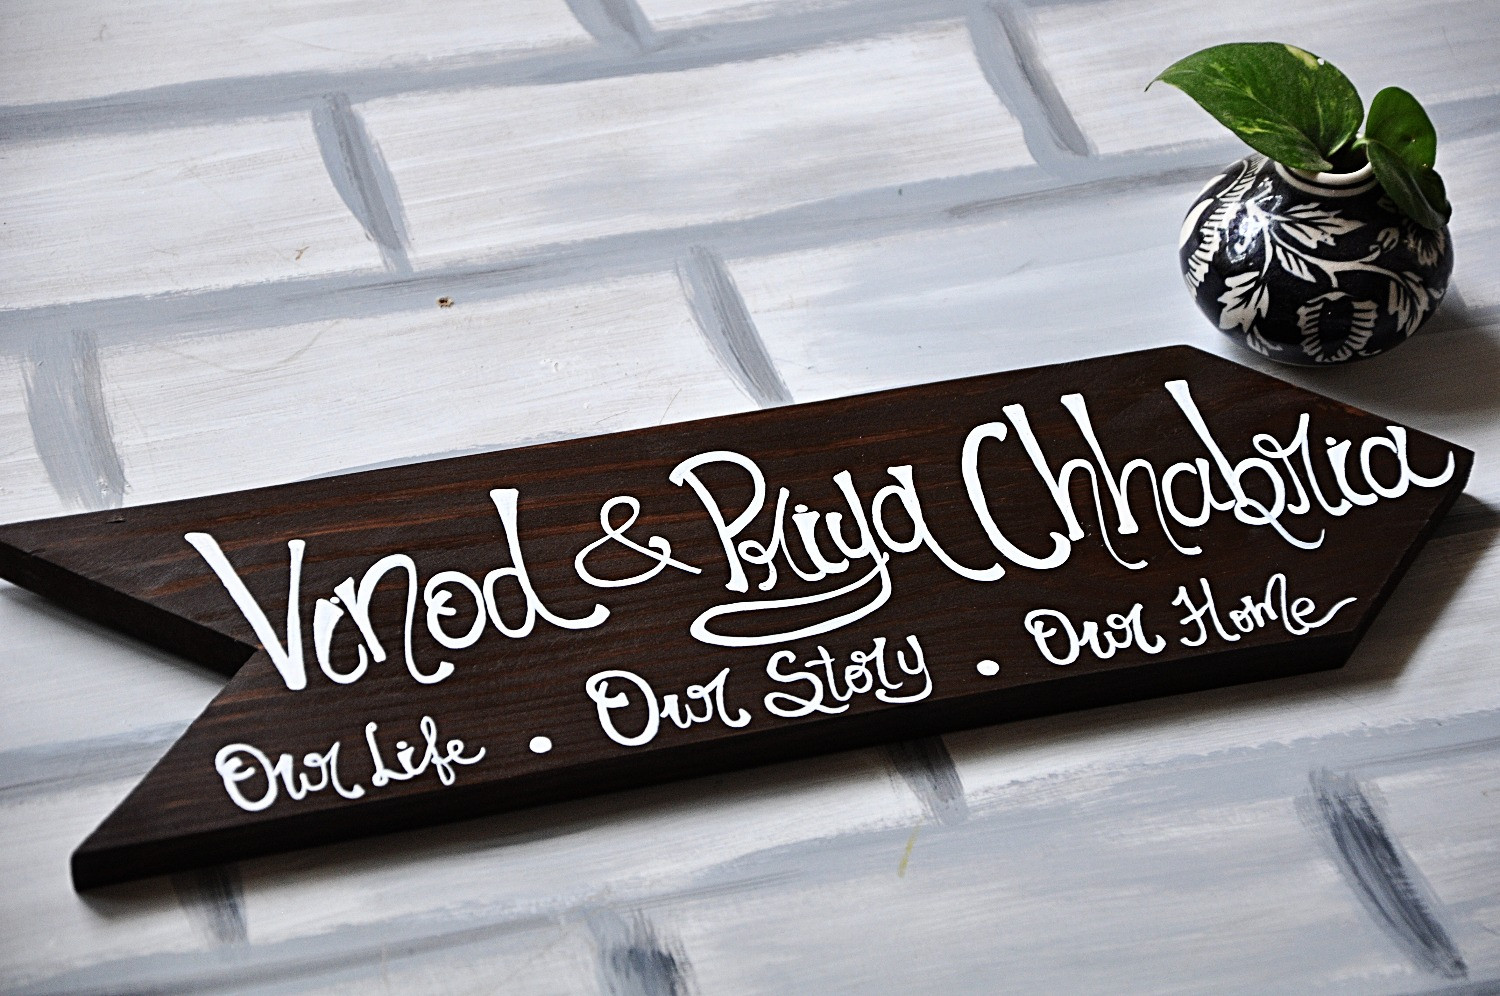 Vinod & Priya Chhabria
Our Life • Our Story • Our Home